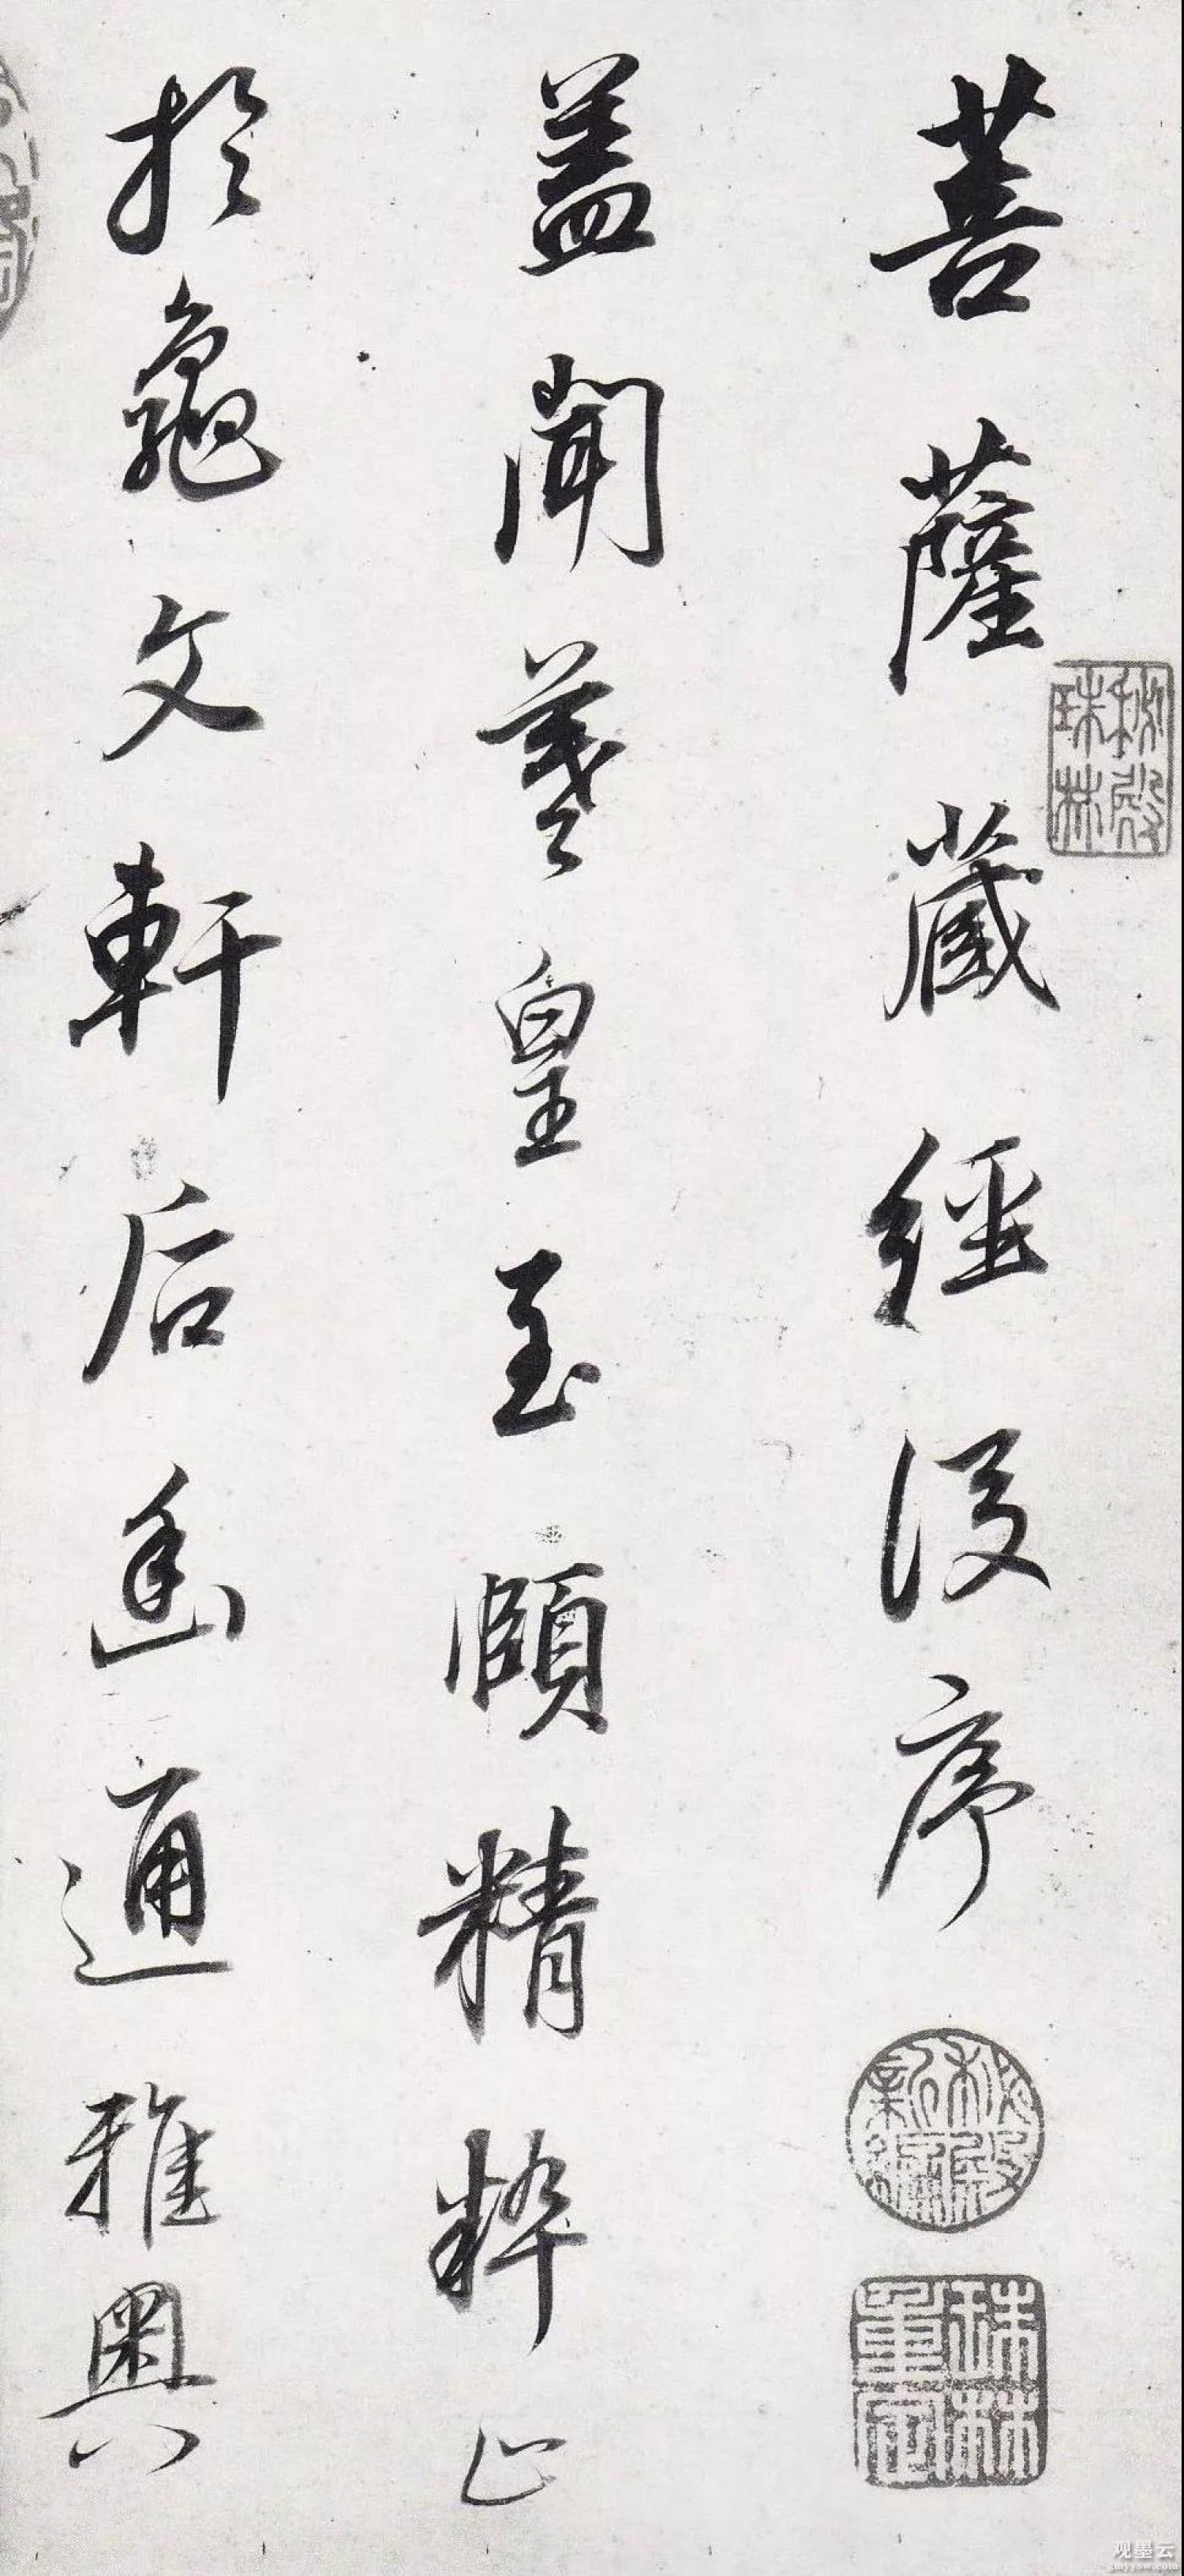 菩薩藏經後序
蓋聞羲皇至賾精粹止
於龜文軒后幽通雅奧
秘殿珠林
秘殿新編
珠林重定
观墨云
gmyysw.com